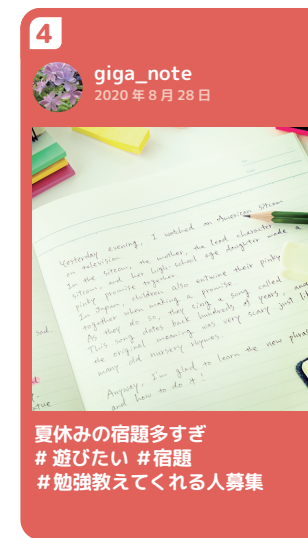 4
giga_note
2020年8月28日
Yesterday evening, I watched an American sitcom
on television.
In the sitcom, the mother, the lead character
sitcom, and her high-school age daughter made a
pinky promise together.
In Japan, children also entwine their pinky
together when making a promise.
As they do so, they sing a song called
This song dates back hundreds of years, and
the original meaning was very scary just li
many old nursery rhymes.
Anyway, I'm glad to learn the new phras
and how to do it!
夏休みの宿題多すぎ
#遊びたい #宿題
#勉強教えてくれる人募集